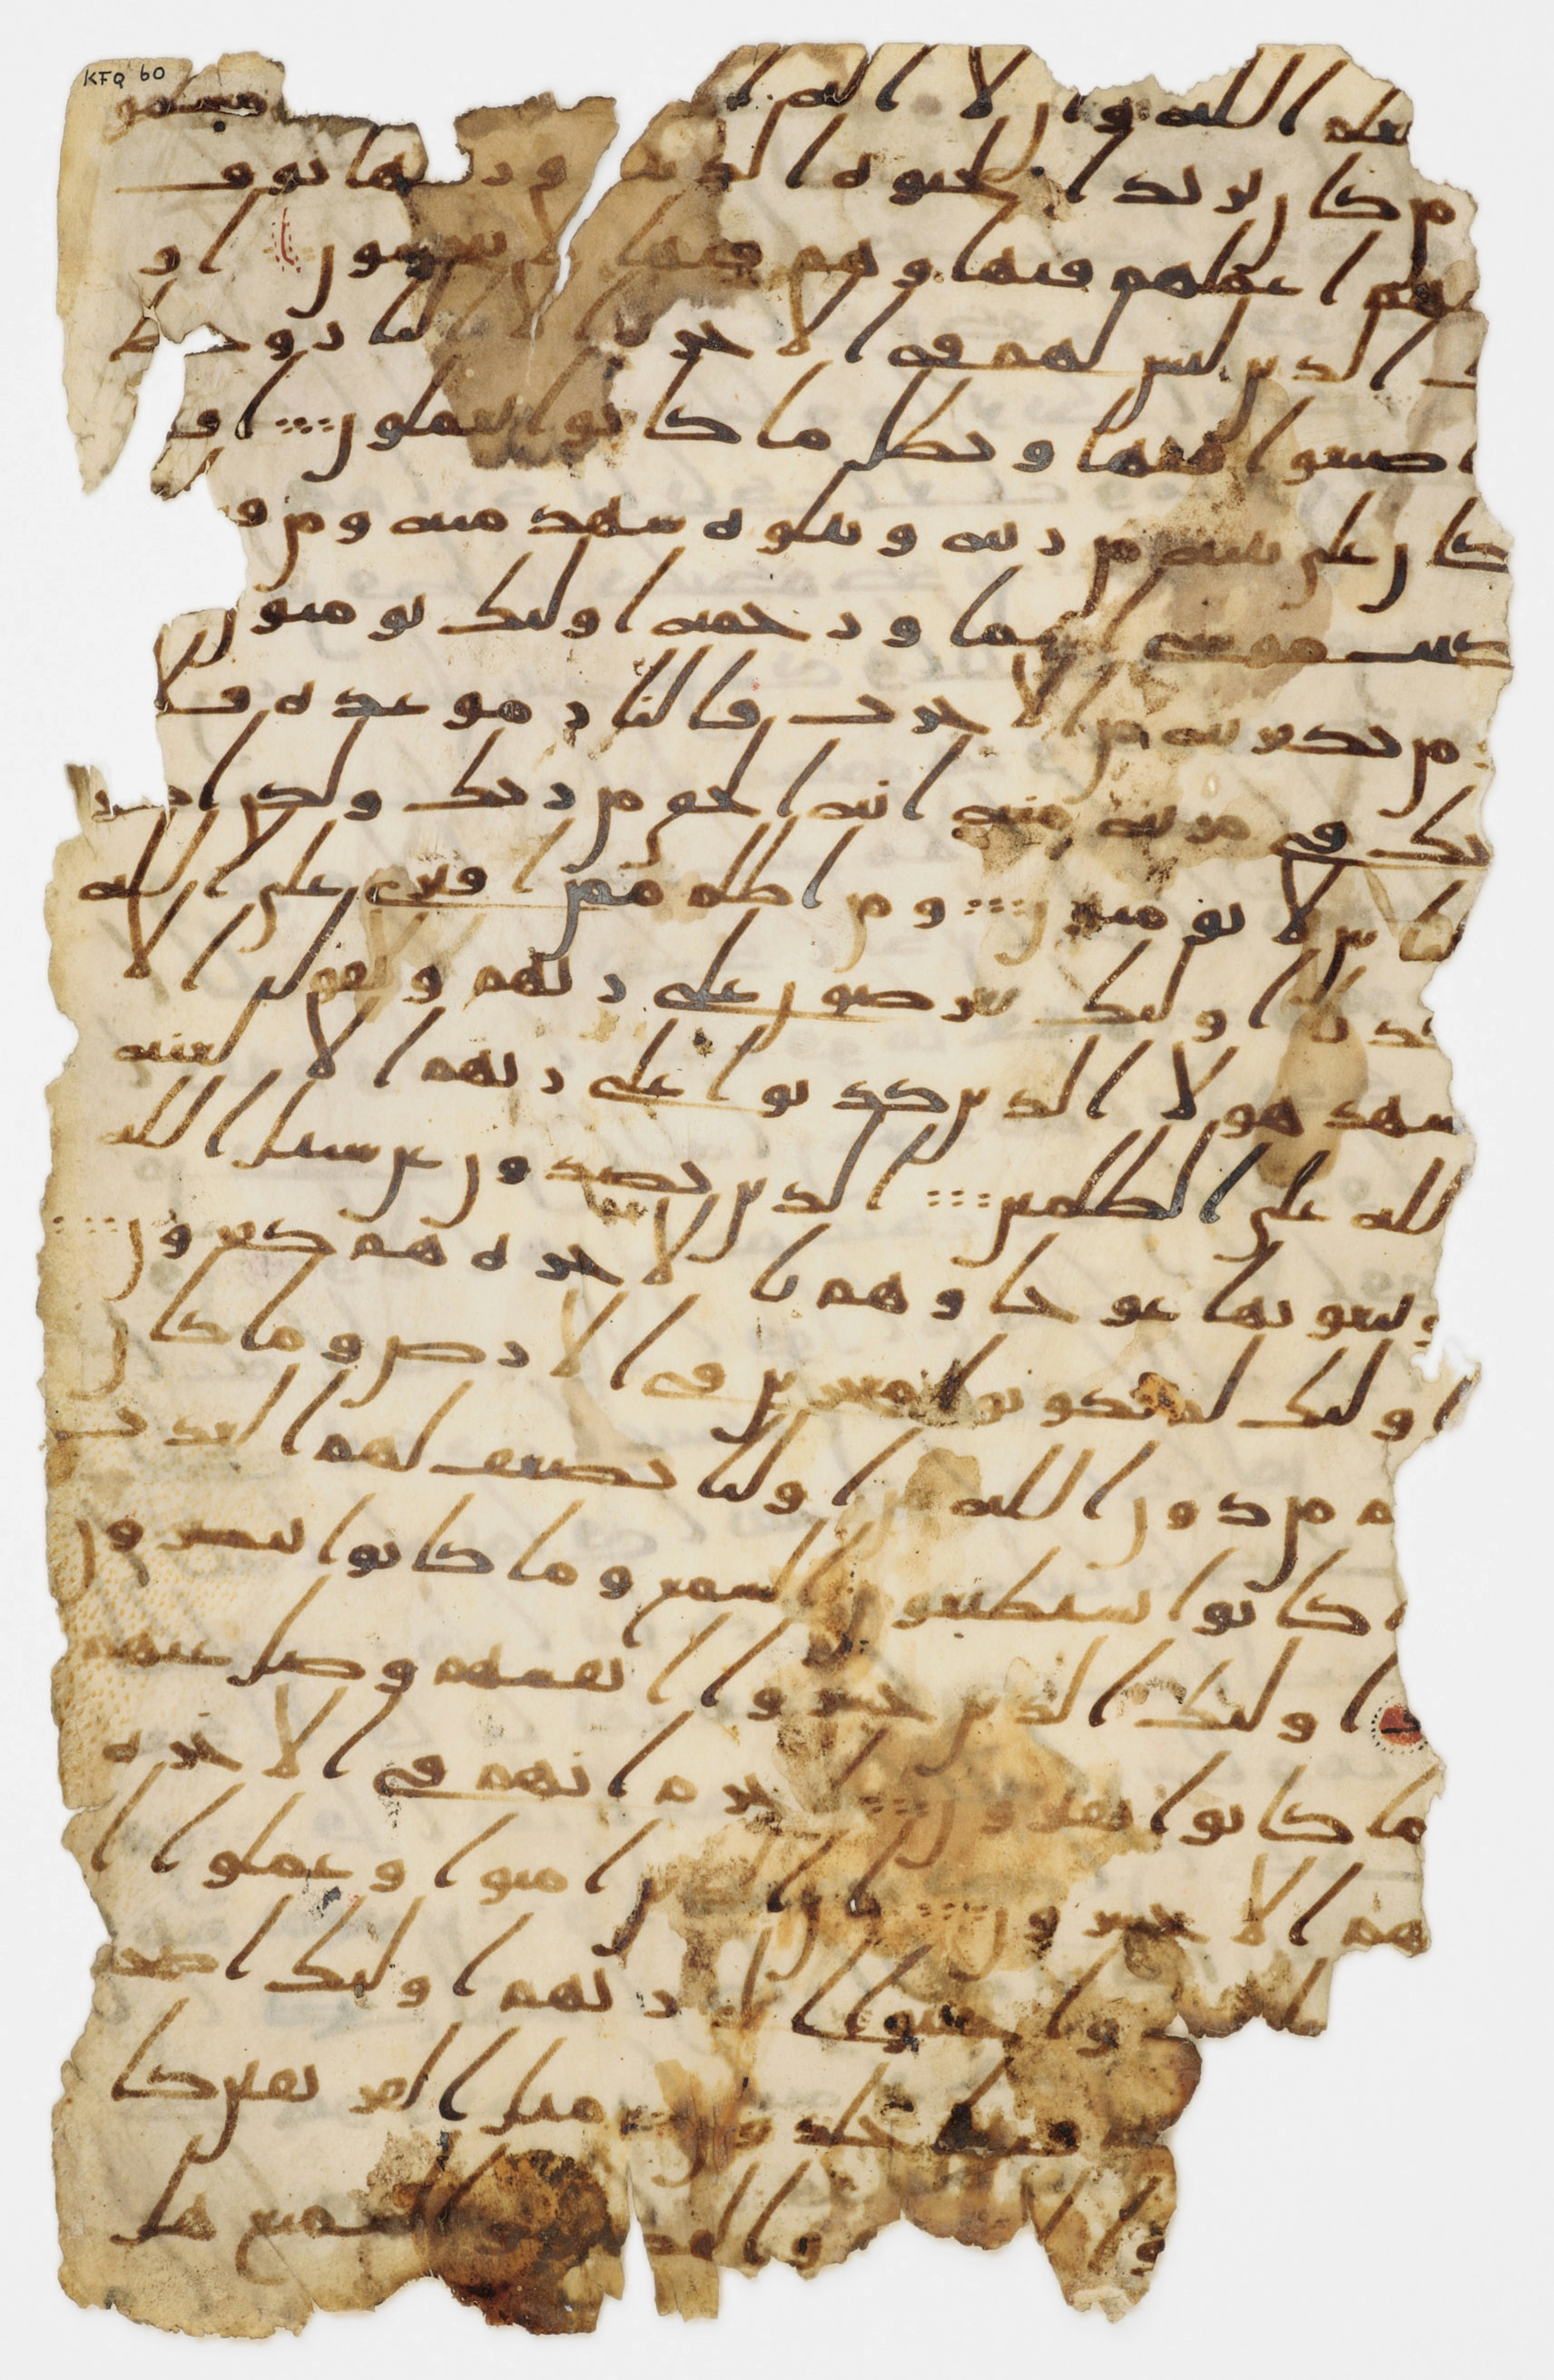 بعلم الله وان لا اله ا مسلمو
من كان يريد الحيوه الدنيا وزينتها نوف
اليهم اعملهم فيها وهم فيها لا يبخسون او
لئك الذين ليس لهم في الاخره الا النار وحبط
ما صنعوا فيها وبطل ما كانوا يعملون اف
كان على بينه من ربه ويتلوه شهد منه ومن
كتب موسى اماما ورحمه اولئك يومنون
من يكفر به من الاحزب فالنار موعده فلا
تك في مريه منه انه الحق من ربك ولكن اكثر
الناس لا يومنون ومن اظلم ممن افترى على الله
كذبا اولئك يعرضون على ربهم ويقول الا
شهد هولا الذين كذبوا على ربهم الا لعنه
الله على الظلمين الذين يصدون عن سبيل الله
ويبغونها عوجا وهم بالاخره هم كفرون
اولئك لم يكونوا معجزين في الارض وما كان
لهم من دون الله من اوليا يضعف لهم العذب
ما كانوا يستطيعون السمع وما كانوا يبصرون
اولئك الذين خسروا انفسهم وضل عنهم
ما كانوا يفترون لا جرم انهم في الاخره
هم الاخسرون ان الذين امنوا وعملوا ا
واخبتوا الى ربهم اولئك اصحب
هم فيها خلدون مثل الفريقين كا
والاصم والبصير والسميع هل
KFQ 60